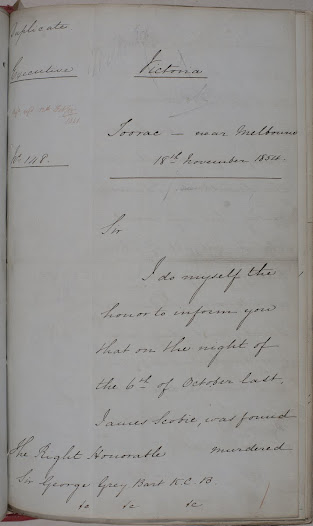 Duplicate
Executive
Victoria
No 148.
Toorac – near Melbourne
18th November 1854.
Sir
I do myself the
honor to inform you
that on the night of
the 6th of October last,
James Scobie, was found
murdered
The Right Honorable
Sir George Grey Bart K.C.B.
&c &c &c